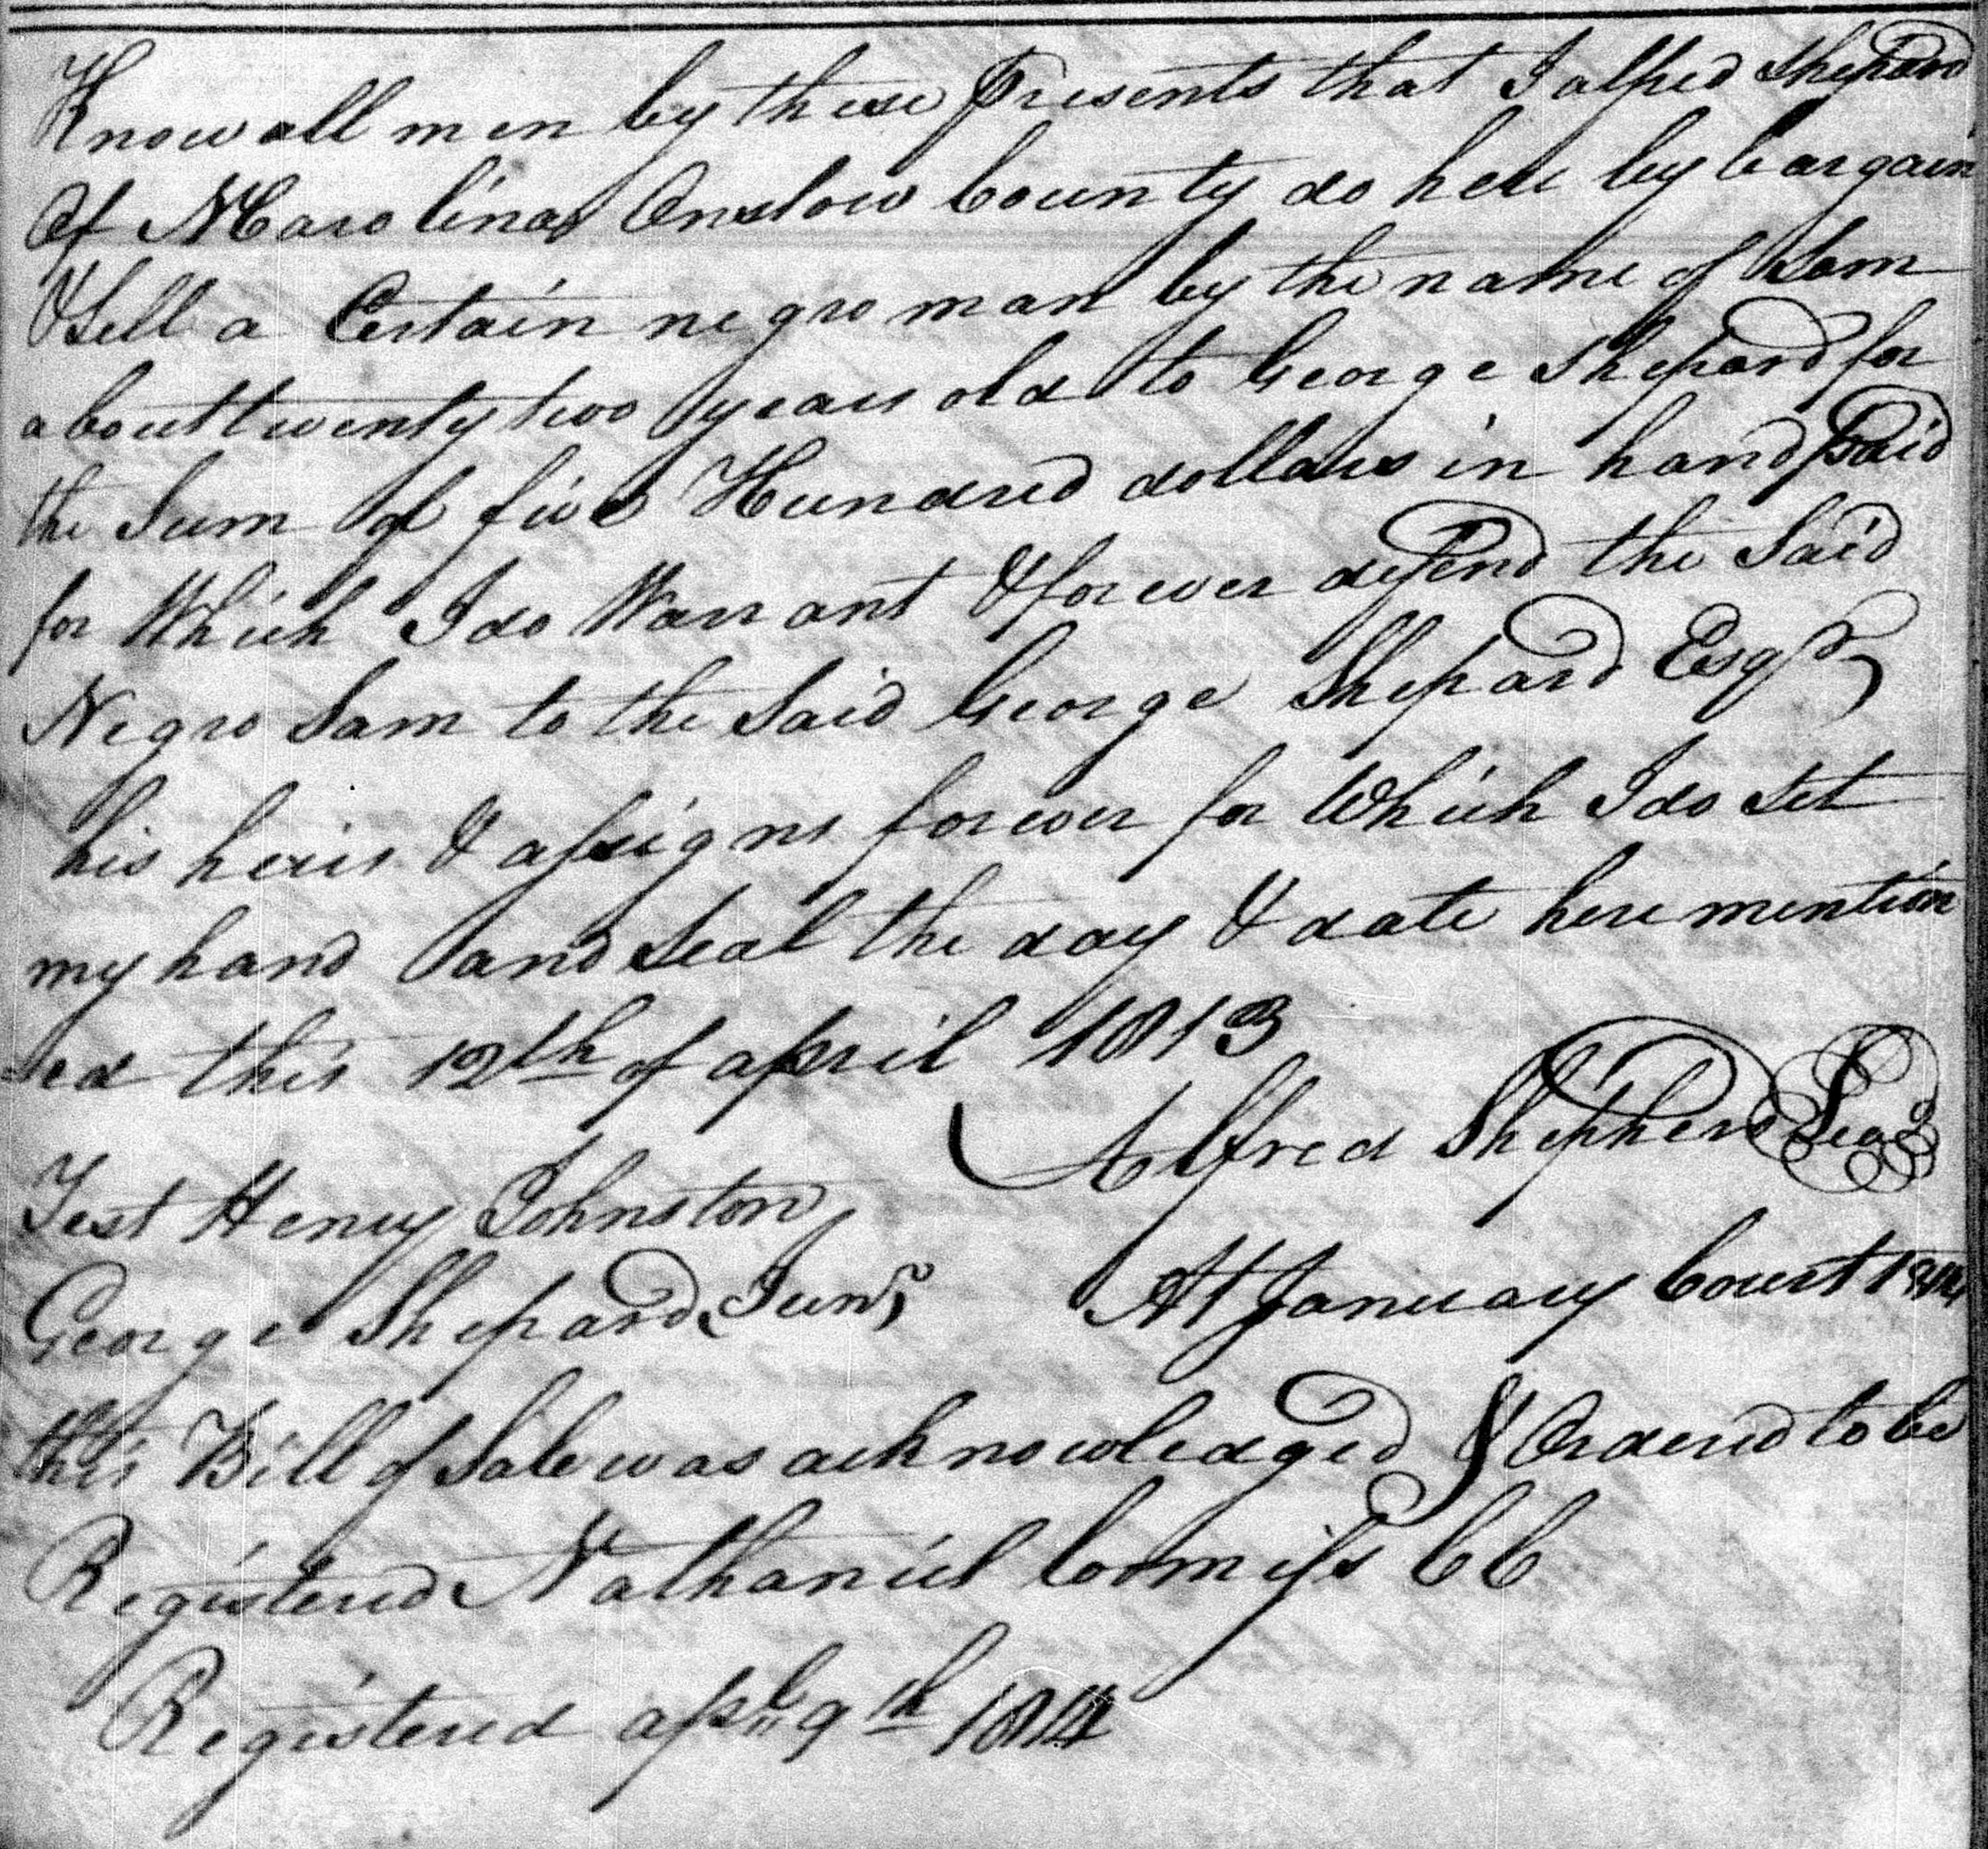 Know all men by these Presents that I alfred Shepard
Of NCarolina Onslow County do here by bargain
& Sell a Certain negro man by the name of Sam
about twenty two years old to George Shepard for
the Sum of five Hundred dollars in hand paid
for Which I do Warrant & forever defend the Said
Negro Sam to the Said George Shepard Esqr
his heirs & assigns forever for Which I do Set
my hand and Seal the day & date here mention
ed this 12th of april 1813
Alfred Shepherd Seal
Test Henry Johnston
George Shepard Junr At January Court 1814
this Bill of Sale was acknowledged & Ordered to be
Registered Nathaniel Loomiss CC
Registered apl 9th 1814